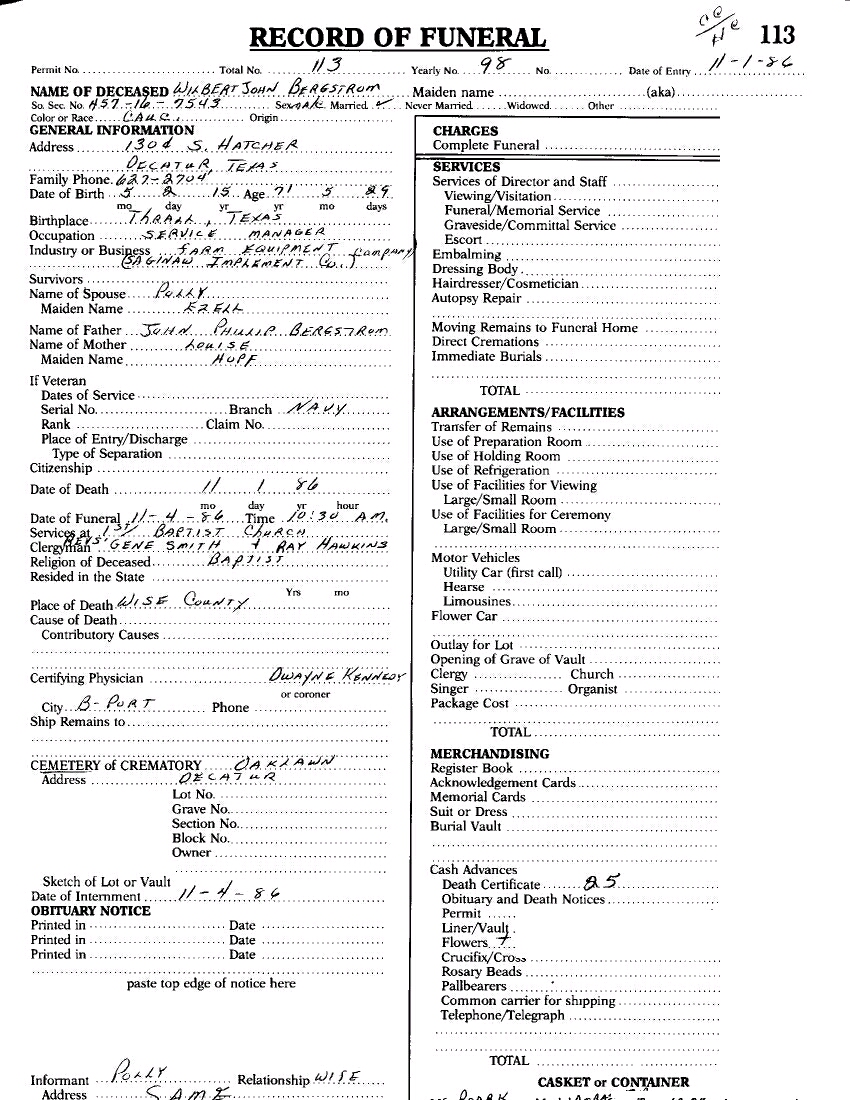 RECORD OF FUNERAL 113
Permit No. Total No. 113 Yearly No. 98 No. Date of Entry 11-1-86
NAME OF DECEASED WILBERT JOHN BERGSTROM Maiden name (aka)
So. Sec. No. 457-16-7543 Sex MALE Married ✓ Never Married Widowed Other
Color or Race CAUC. Origin
GENERAL INFORMATION
Address 1304 S. HATCHER
DECATUR, TEXAS
Family Phone 627-2704
Date of Birth 5 2 15 Age 71 5 29
mo day yr yr mo days
Birthplace THRALL, TEXAS
Occupation SERVICE MANAGER
Industry or Business FARM EQUIPMENT Company
(SAGINAW IMPLEMENT CO.)
Survivors
Name of Spouse POLLY
Maiden Name EZELL
Name of Father JOHN PHILLIP BERGSTROM
Name of Mother LOUISE
Maiden Name HOPF
If Veteran
Dates of Service
Serial No. Branch NAVY
Rank Claim No.
Place of Entry/Discharge
Type of Separation
Citizenship
Date of Death 11 1 86
mo day yr hour
Date of Funeral 11-4-86 Time 10:30 A.M.
Services at 1ST BAPTIST CHURCH
Clergyman REVS GENE SMITH & RAY HAWKINS
Religion of Deceased BAPTIST
Resided in the State
Yrs mo
Place of Death WISE COUNTY
Cause of Death
Contributory Causes
Certifying Physician DWAYNE KENNEDY
or coroner
City B-PORT Phone
Ship Remains to
CEMETERY of CREMATORY OAKLAWN
Address DECATUR
Lot No.
Grave No.
Section No.
Block No.
Owner
Sketch of Lot or Vault
Date of Internment 11-4-86
OBITUARY NOTICE
Printed in Date
Printed in Date
Printed in Date
paste top edge of notice here
Informant POLLY Relationship WIFE
Address SAME
CHARGES
Complete Funeral
SERVICES
Services of Director and Staff
Viewing/Visitation
Funeral/Memorial Service
Graveside/Committal Service
Escort
Embalming
Dressing Body
Hairdresser/Cosmetician
Autopsy Repair
Moving Remains to Funeral Home
Direct Cremations
Immediate Burials
TOTAL
ARRANGEMENTS/FACILITIES
Transfer of Remains
Use of Preparation Room
Use of Holding Room
Use of Refrigeration
Use of Facilities for Viewing
Large/Small Room
Use of Facilities for Ceremony
Large/Small Room
Motor Vehicles
Utility Car (first call)
Hearse
Limousines
Flower Car
Outlay for Lot
Opening of Grave of Vault
Clergy Church
Singer Organist
Package Cost
TOTAL
MERCHANDISING
Register Book
Acknowledgement Cards
Memorial Cards
Suit or Dress
Burial Vault
Cash Advances
Death Certificate 25
Obituary and Death Notices
Permit
Liner/Vault
Flowers
Crucifix/Cross
Rosary Beads
Pallbearers
Common carrier for shipping
Telephone/Telegraph
TOTAL
CASKET or CONTAINER